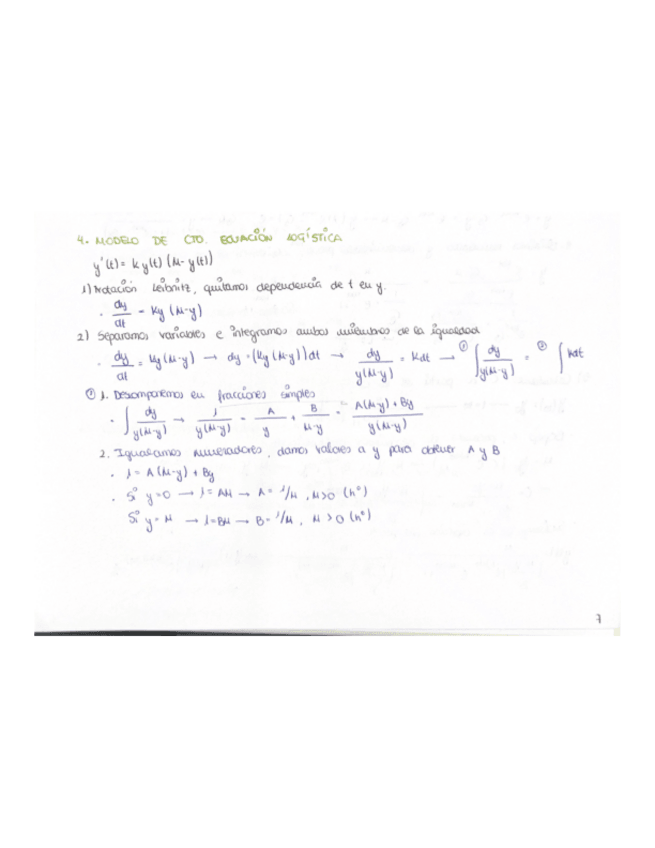 4. MODELO DE CTO. ECUACIÓN LOGÍSTICA
y'(t) = k y(t) (M - y(t))
1) Notación Leibnitz, quitamos dependencia de t en y.
· dy/dt = Ky (M-y)
2) Separamos variables e integramos ambos miembros de la igualdad
· dy/dt = ky (M-y) → dy = (Ky (M-y)) dt → dy/y(M-y) = Kdt → ① ∫ dy/y(M-y) = ② ∫ Kdt
① 1. Descomponemos en fracciones simples
· ∫ dy/y(M-y) → 1/y(M-y) = A/y + B/M-y = A(M-y) + By/y(M-y)
2. Igualamos numeradores, damos valores a y para obtener A y B
· 1 = A (M-y) + By
· Si y=0 → 1 = AM → A = 1/M, M>0 (hº)
Si y = M → 1=BM → B = 1/M, M > 0 (hº)
7